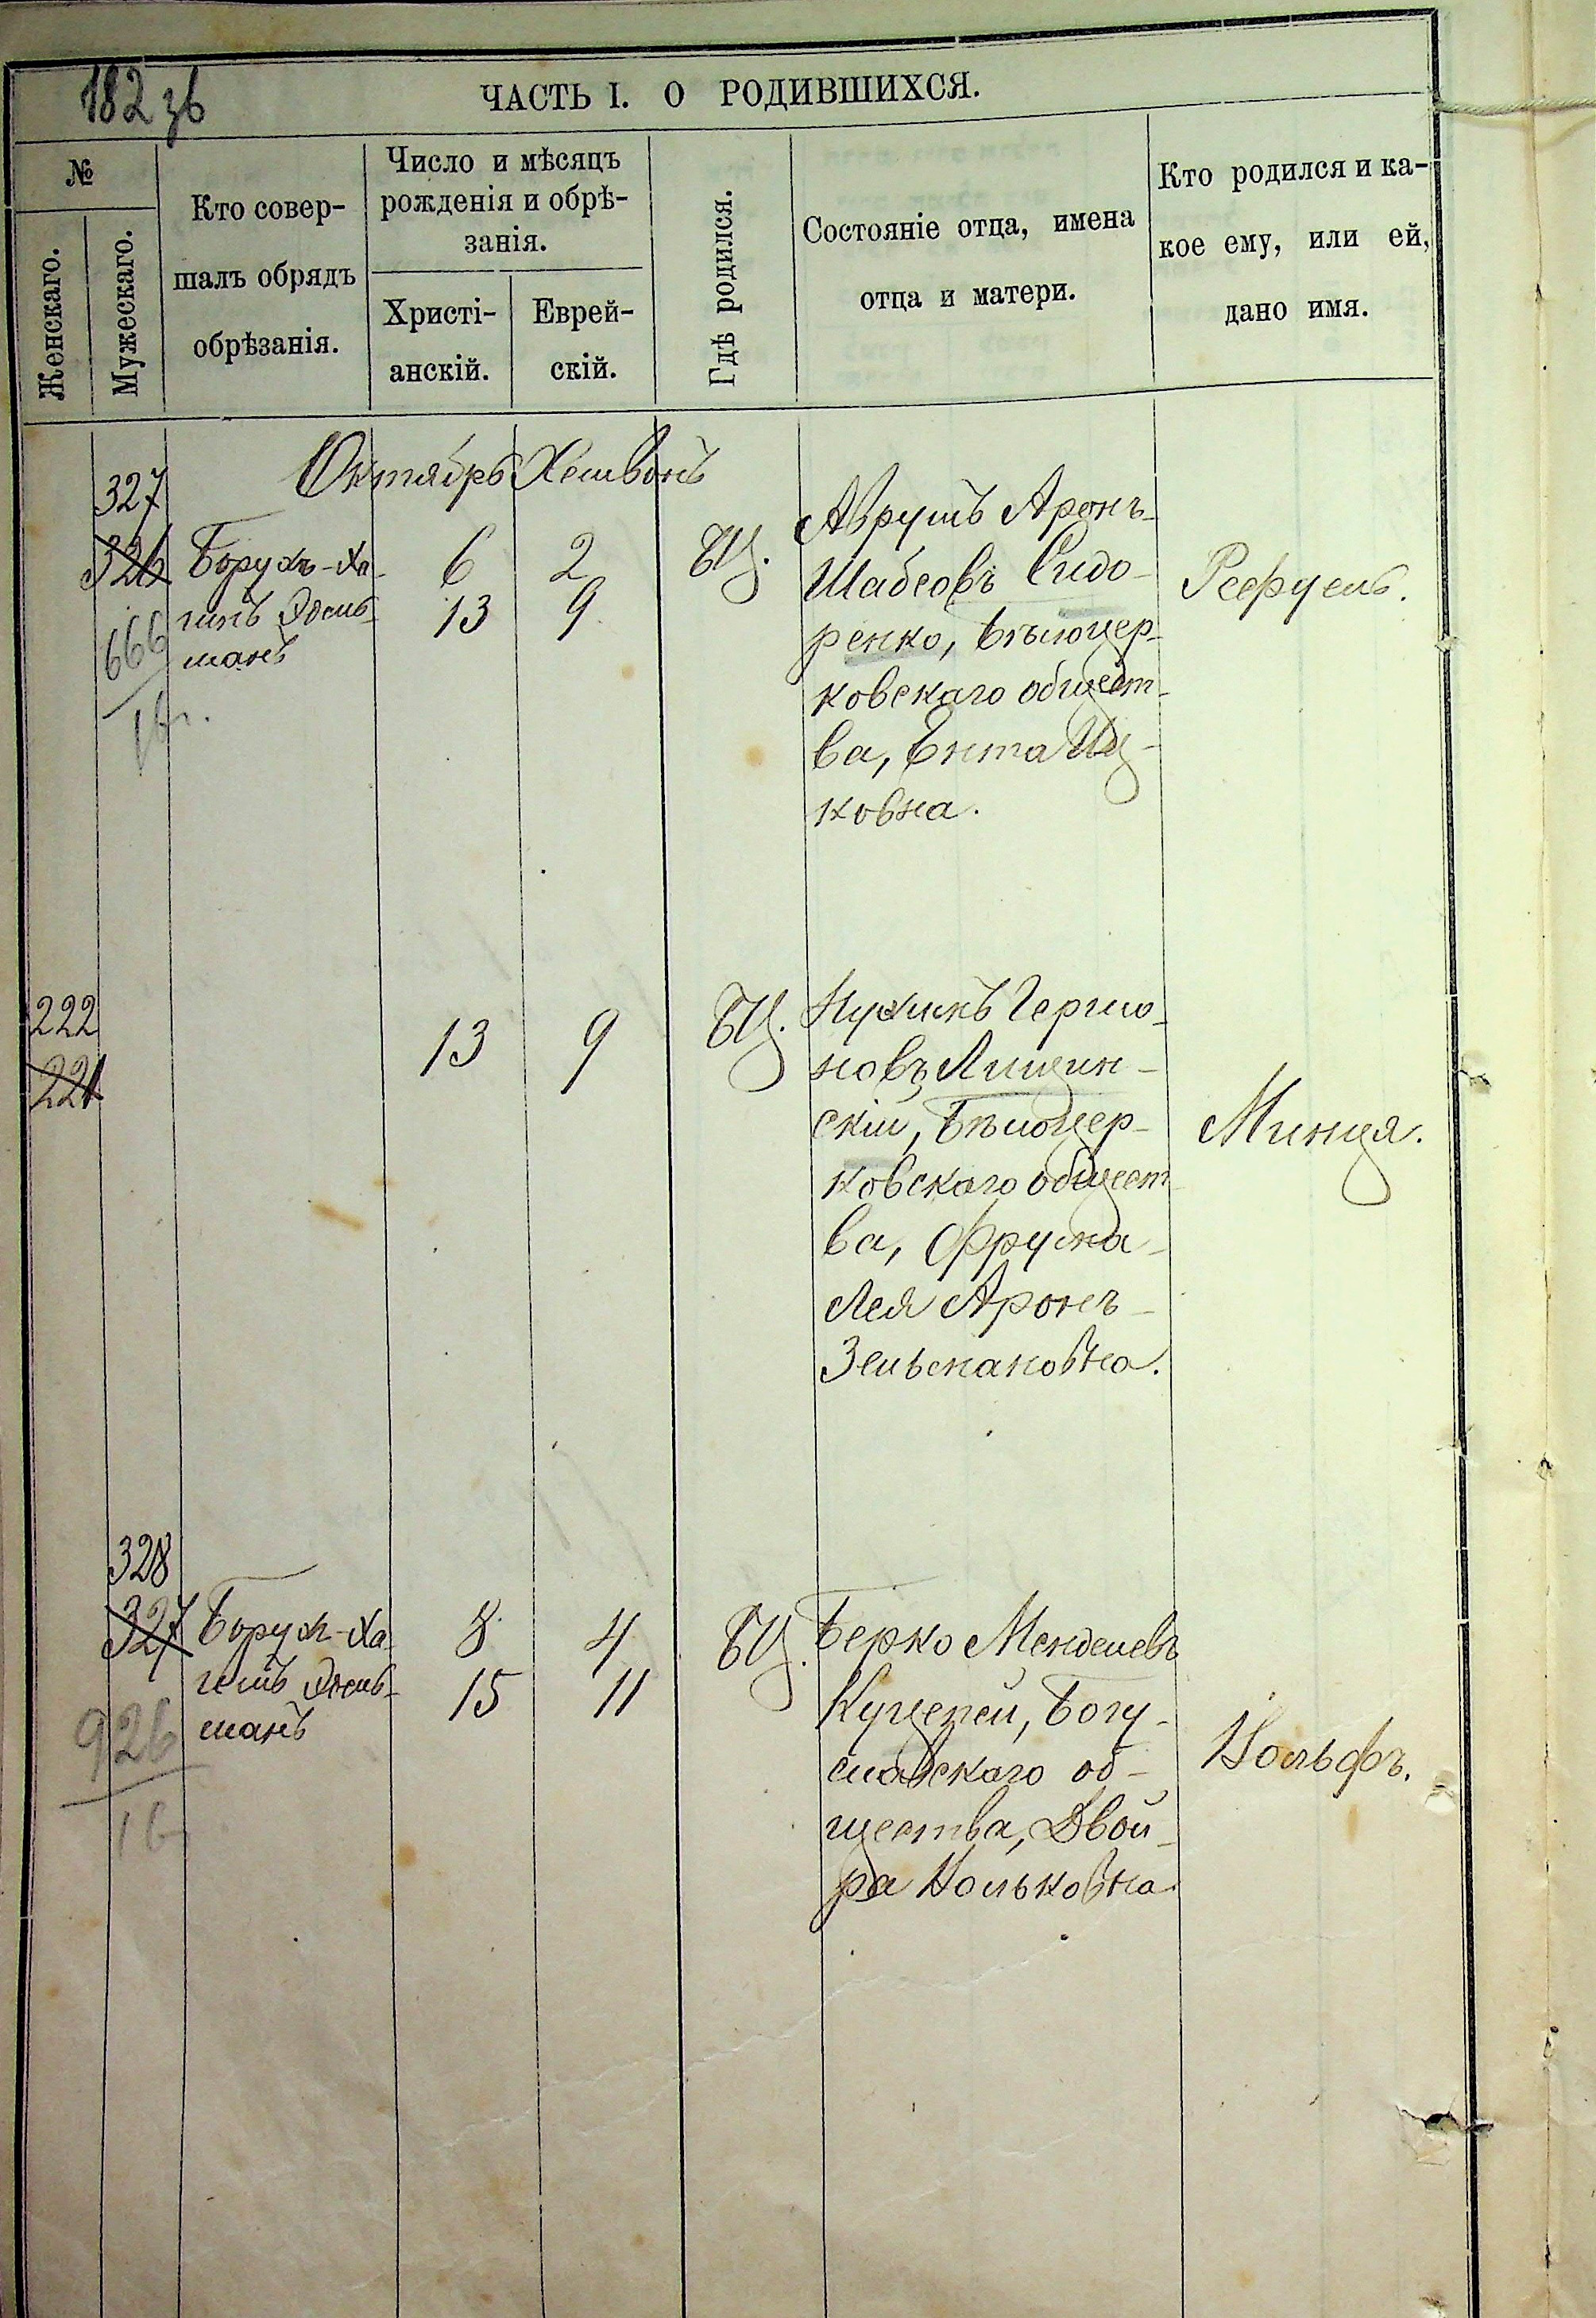 182 зв
ЧАСТЬ I. О РОДИВШИХСЯ.
№
Женскаго.
Мужескаго.
Кто совер-
шалъ обрядъ
обрѣзанія.
Число и мѣсяцъ
рожденія и обрѣ-
занія.
Христі-
анскій.
Еврей-
скій.
Гдѣ родился.
Состояніе отца, имена
отца и матери.
Кто родился и ка-
кое ему, или ей,
дано имя.
Октябрь Хешвонъ
327
326
666
Борухъ-Ха-
мань
6
13
2
9
БЦ.
Аврумъ Аронъ-
Шабсовъ Сидо-
ренко, Бѣлоцер-
ковскаго общест-
ва, Ента Иц-
ковна.
Рефуель.
222
221
13
9
БЦ.
Нухимъ Гершо-
новъ Лищин-
скій, Бѣлоцер-
ковскаго общест
ва, Фрума-
Лея Аронъ-
Зельмановна.
Минця.
328
327
926
Борухъ-Ха
мань
8
15
4
11
БЦ.
Берко Менделевъ
Кучерей, Богу-
славскаго об-
щества, Двой-
ра Вольковна
Вольфъ.